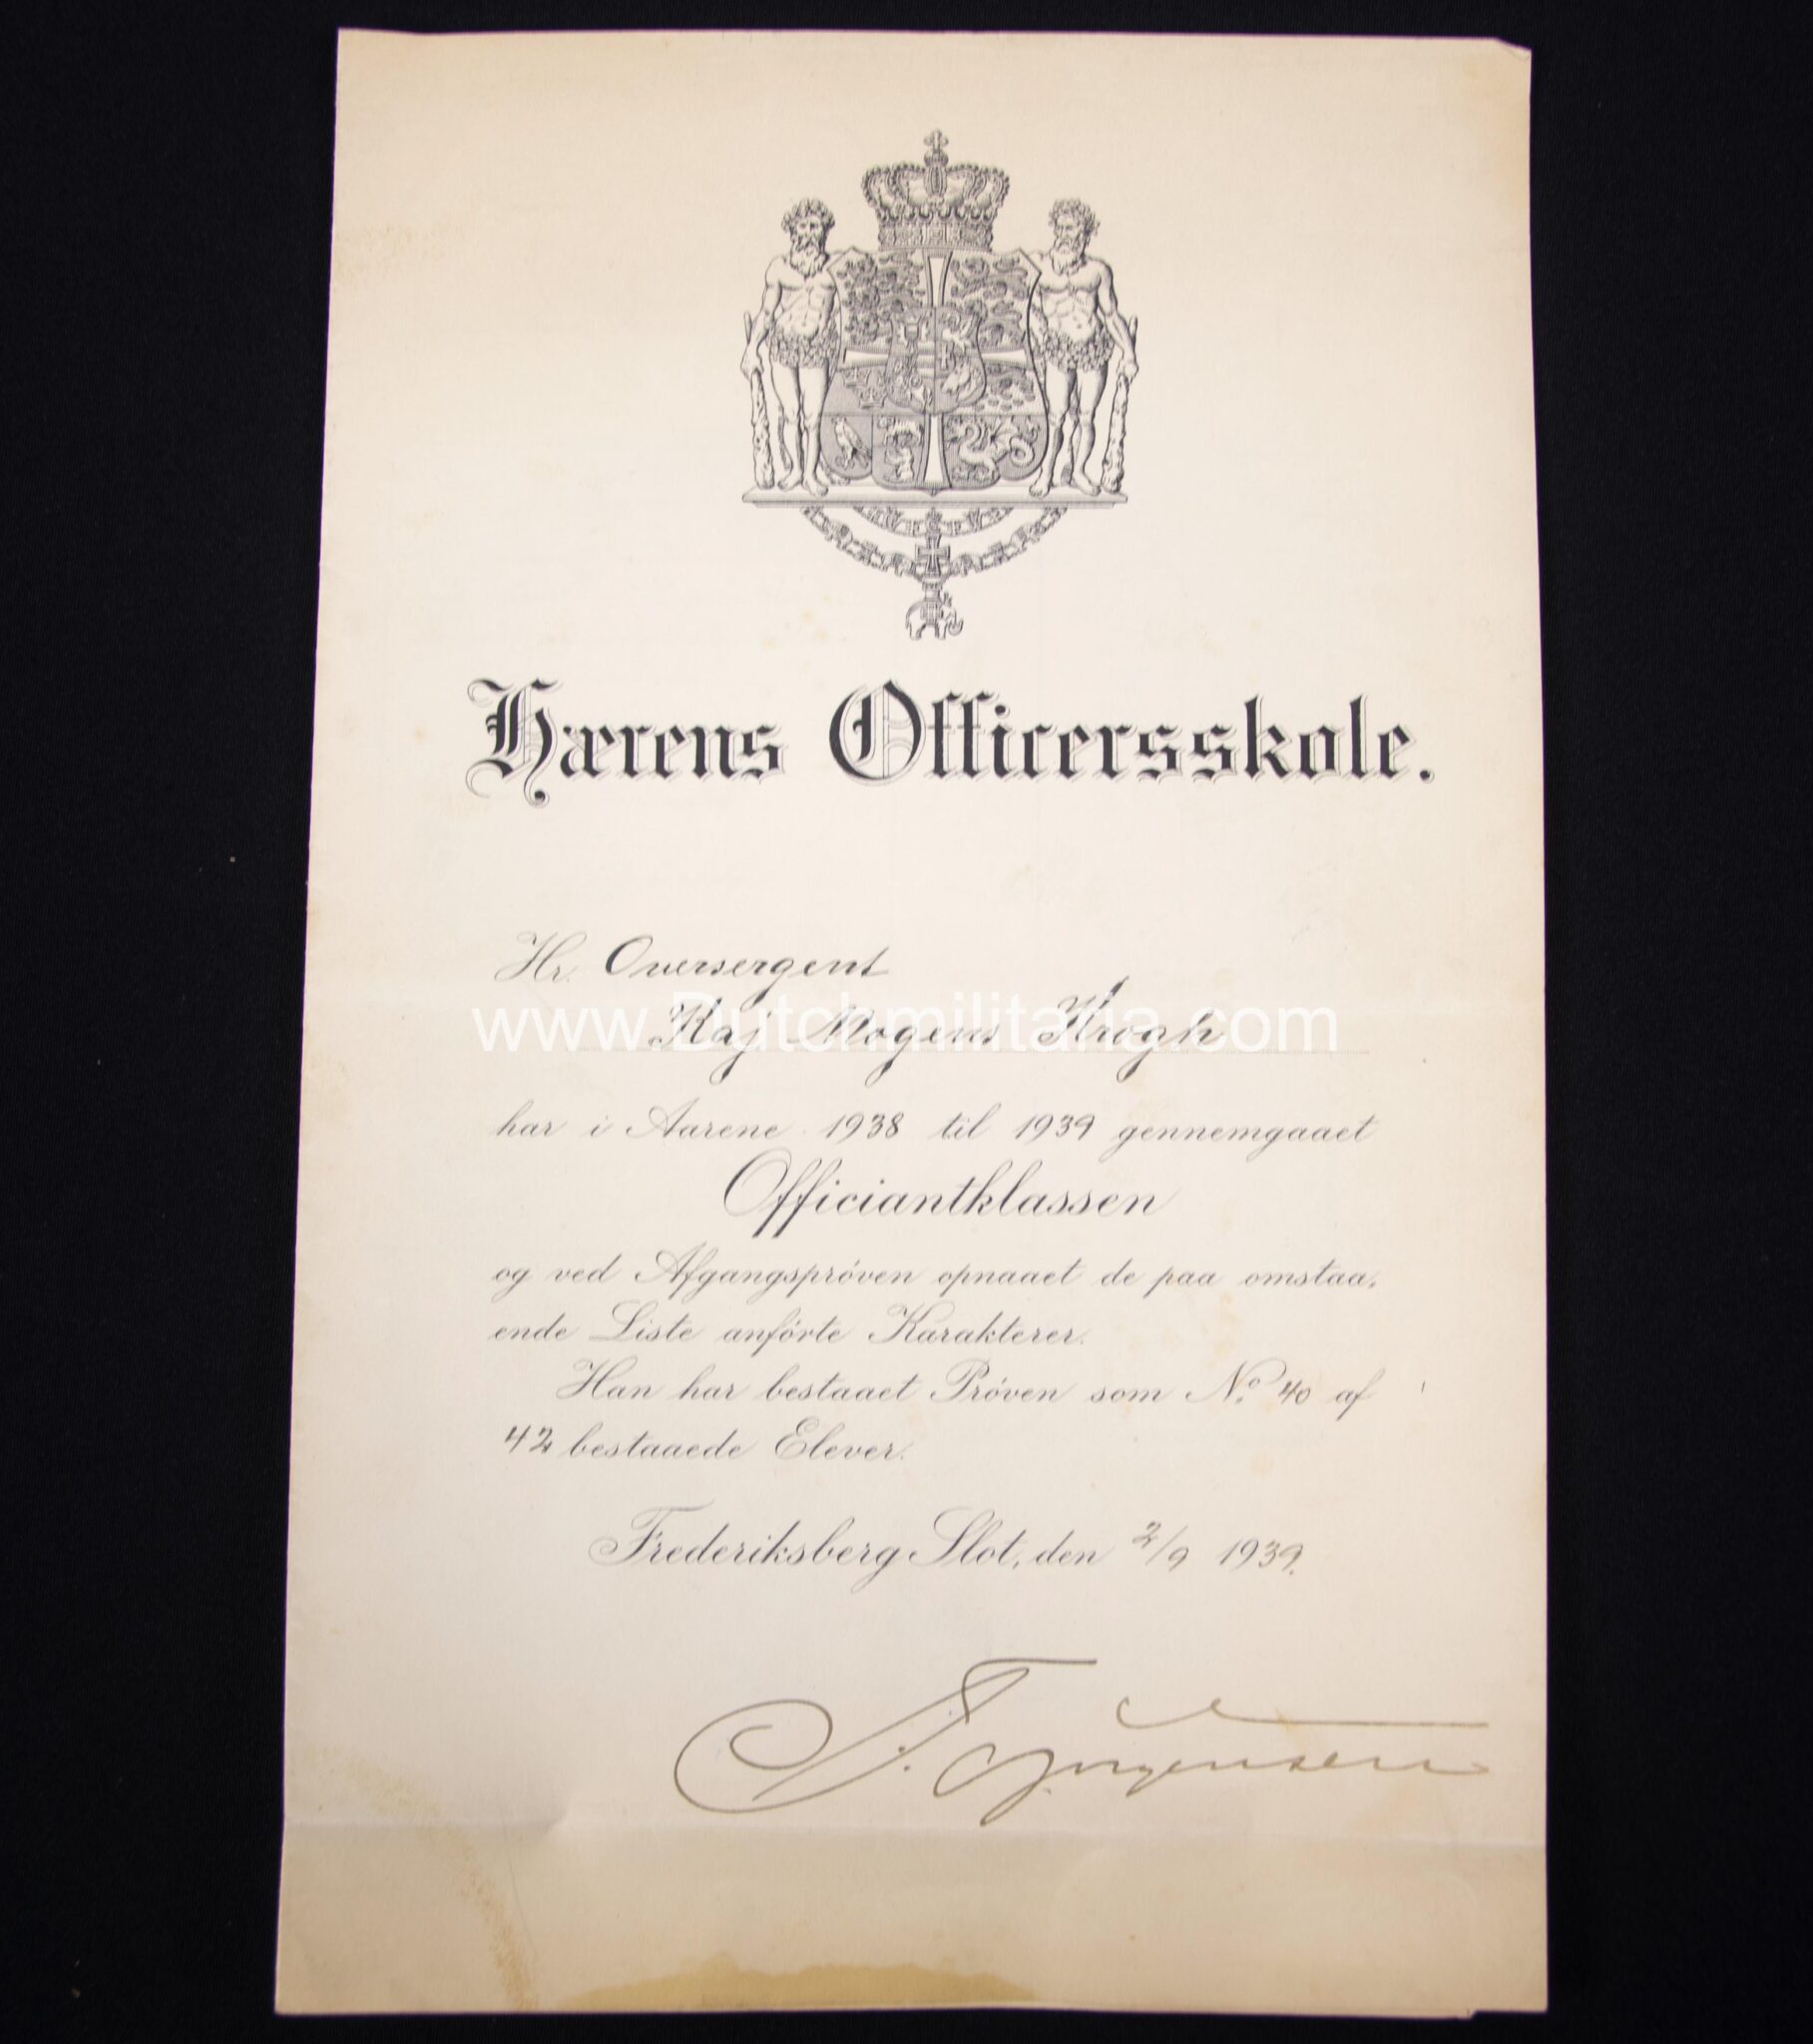 Hærens Officersskole.
Hr. Oversergent
Kaj Mogens Krogh
www.Dutchmilitaria.com
har i Aarene 1938 til 1939 gennemgaaet
Officiantklassen
og ved Afgangsprøven opnaaet de paa omstaa-
ende Liste anførte Karakterer.
Han har bestaaet Prøven som No. 40 af
42 bestaaede Elever.
Frederiksberg Slot, den 2/9 1939.
Jørgensen